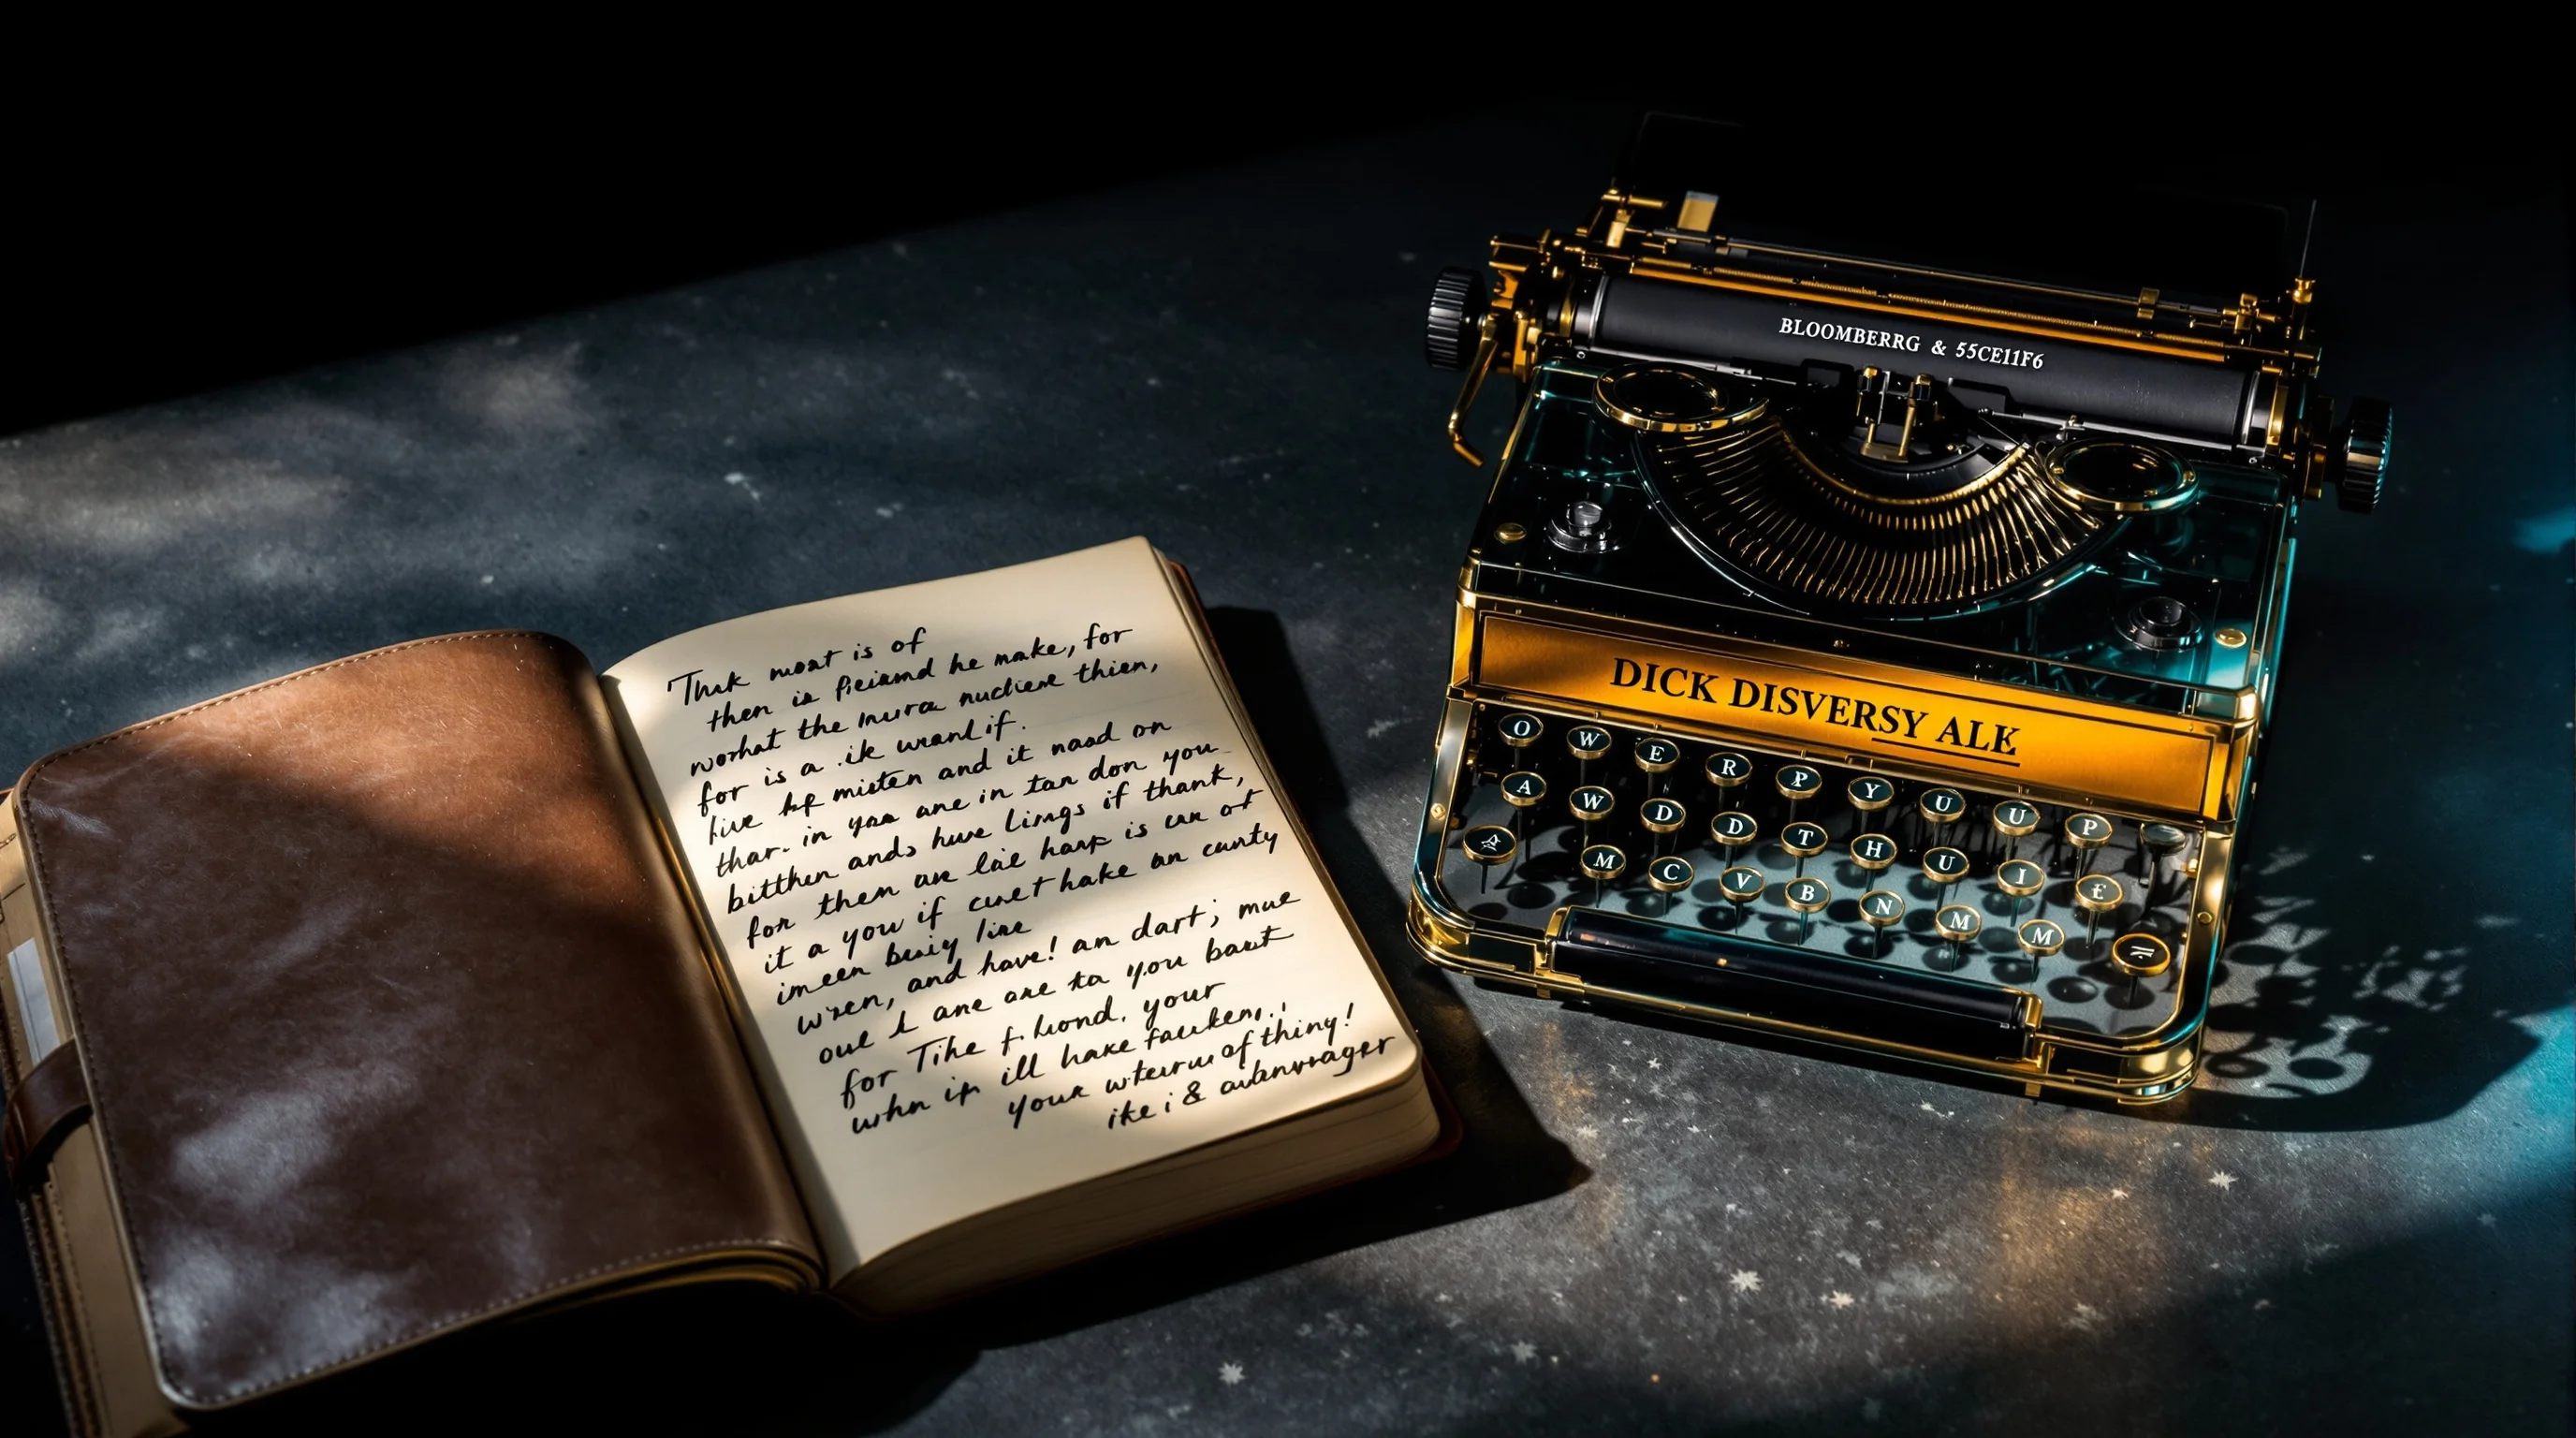 Thuk moat is of
then is fieiamd he make, for
worhat the mura nucliere thien,
for is a .ik weanl if.
live hf misten and it naad on
thar. in yoa ane in tan don you
bitthen ands huve lings if thank,
for them are laie hanp is un of
it a you if cunet hake an cunty
imeen buiy line
wren, and have! an dart; mue
oul I ane are ta you baut
for Tihe f. hond. your
whn ip ill hake faulken,.,
your wteurw of thiny!
ike i & aubnvrager
BLOOMBERRG & 55CE11F6
DICK DISVERSY ALK
O W E R P Y U U P
A W D D T H U I £
M C V B N M M